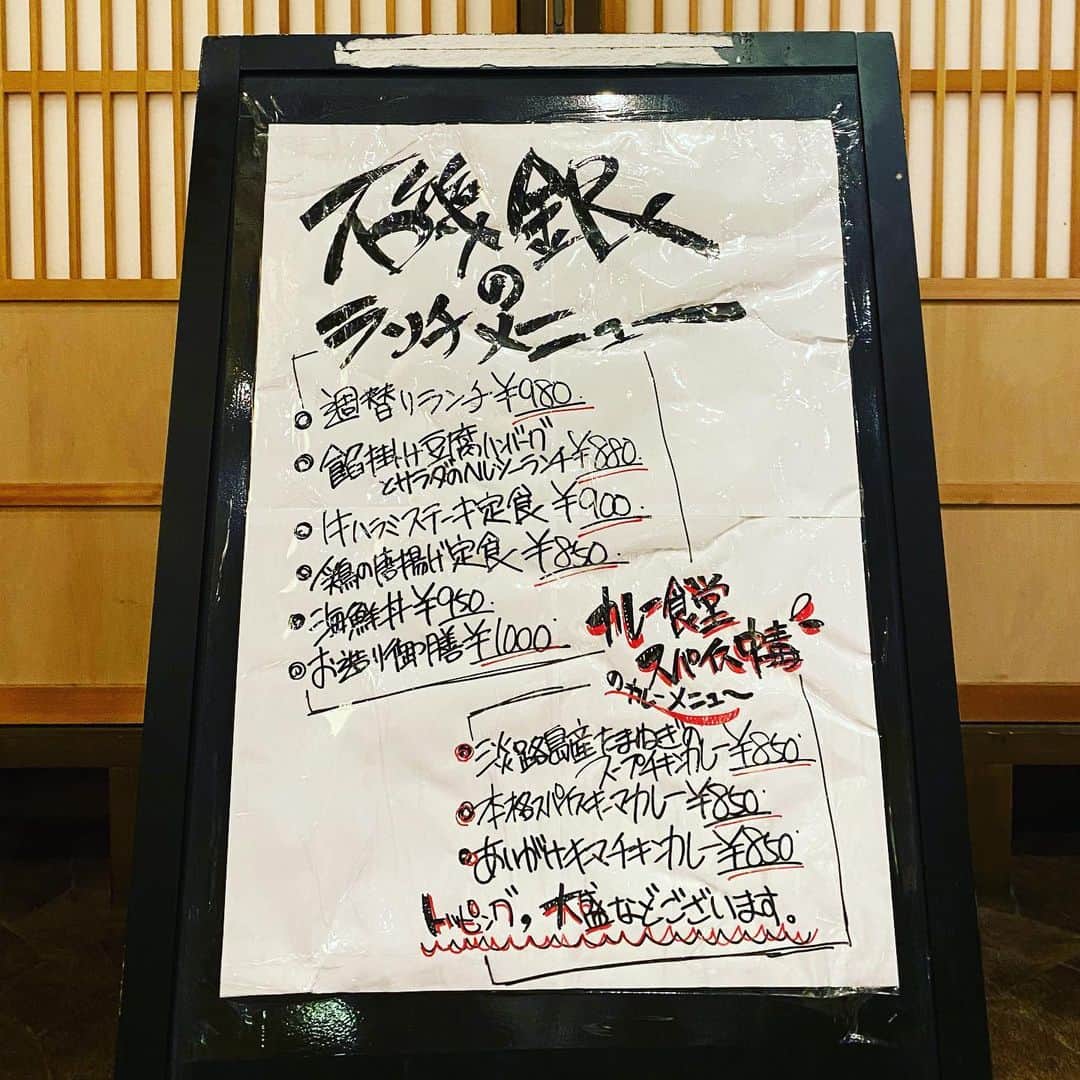 磯銀
の
ランチメニュー
週替りランチ¥980.
餡掛け豆腐ハンバーグ
とサラダのヘルシーランチ¥880.
牛ハラミステーキ定食¥900.
鶏の唐揚げ定食¥850.
海鮮丼¥950.
お造り御膳¥1000.
カレー食堂
スパイス中毒
のカレーメニュー
淡路島産たまねぎの
スープチキンカレー¥850.
本格スパイスキーマカレー¥850.
あいがけキーマチキンカレー¥850.
トッピング,大盛などございます。